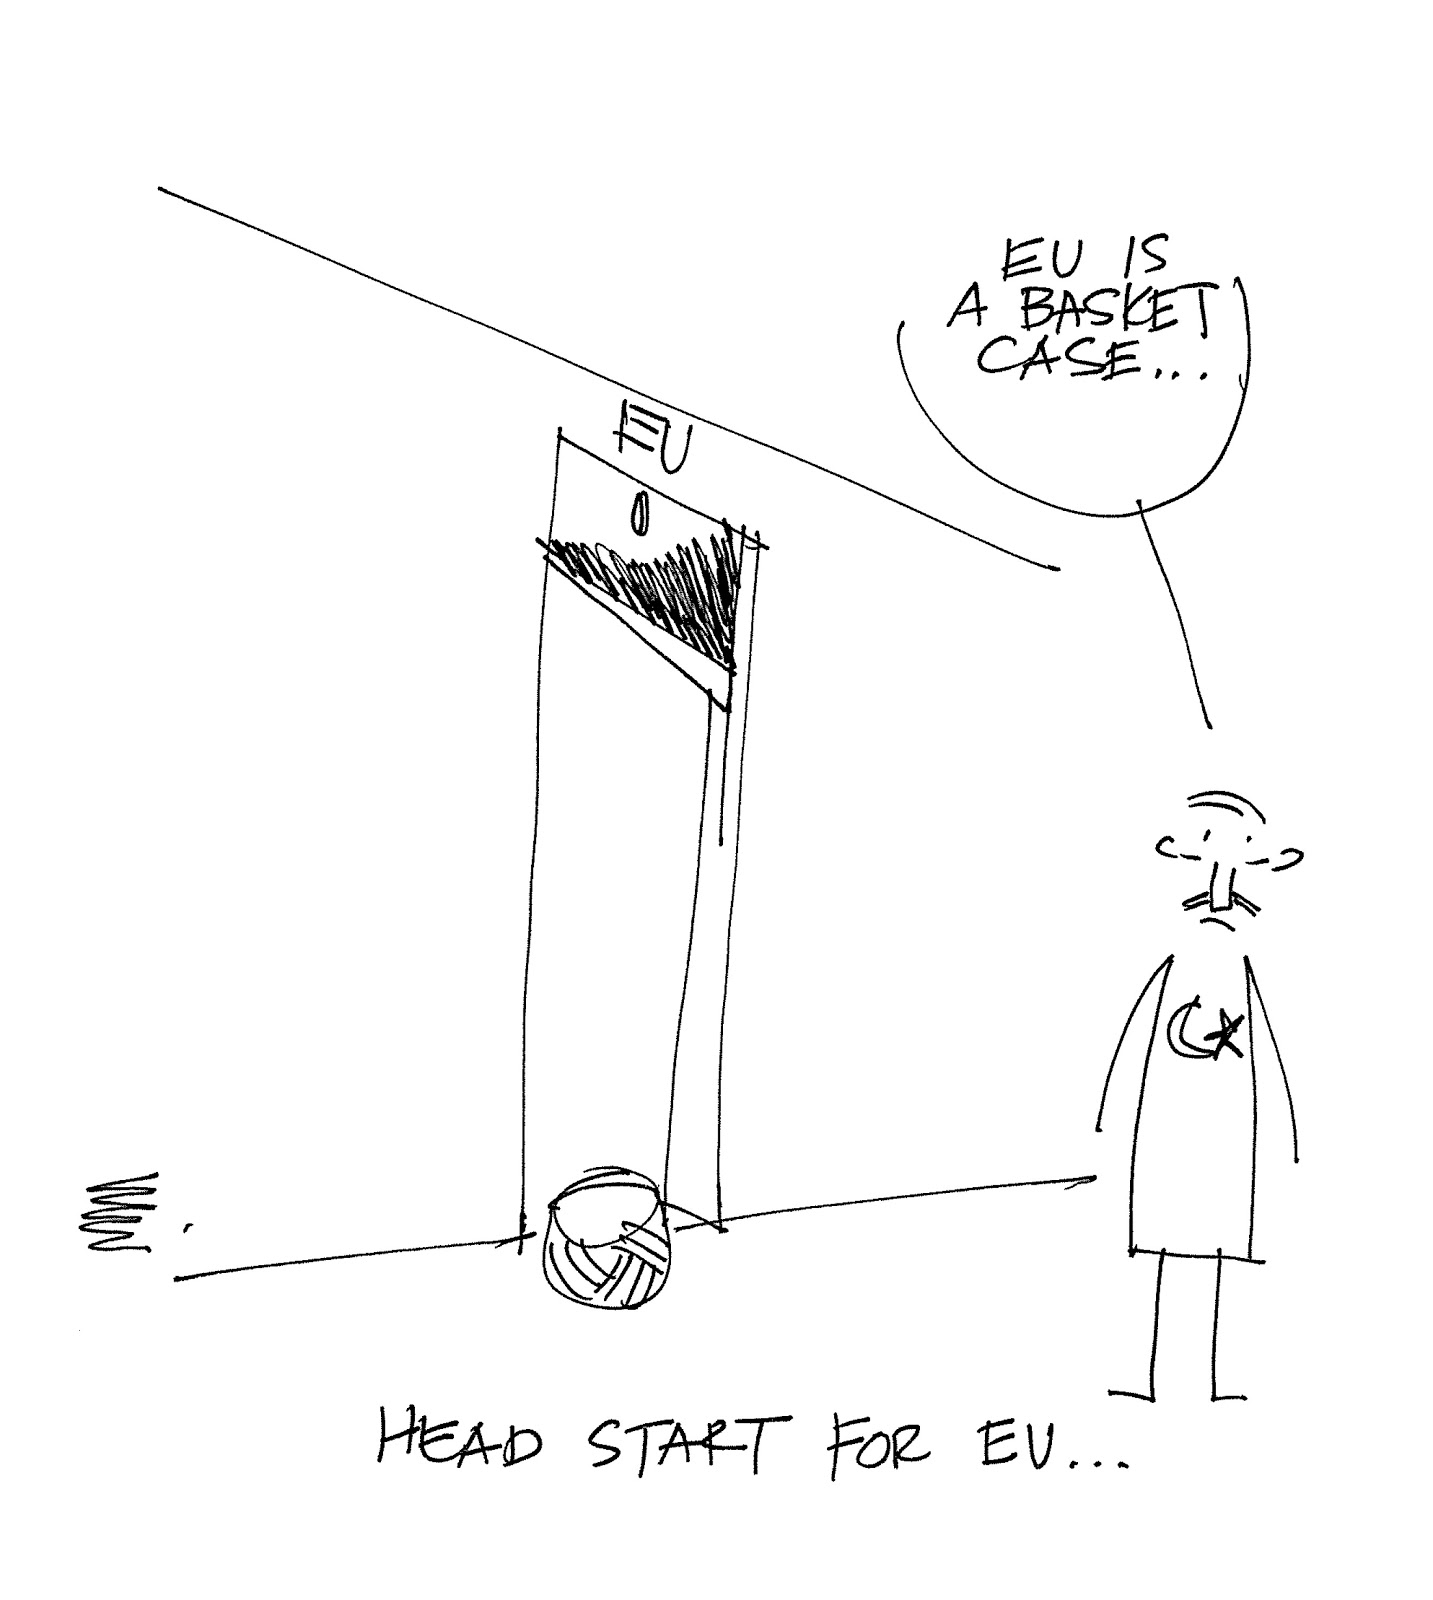 EU IS
A BASKET
CASE...
EU
HEAD START FOR EU...